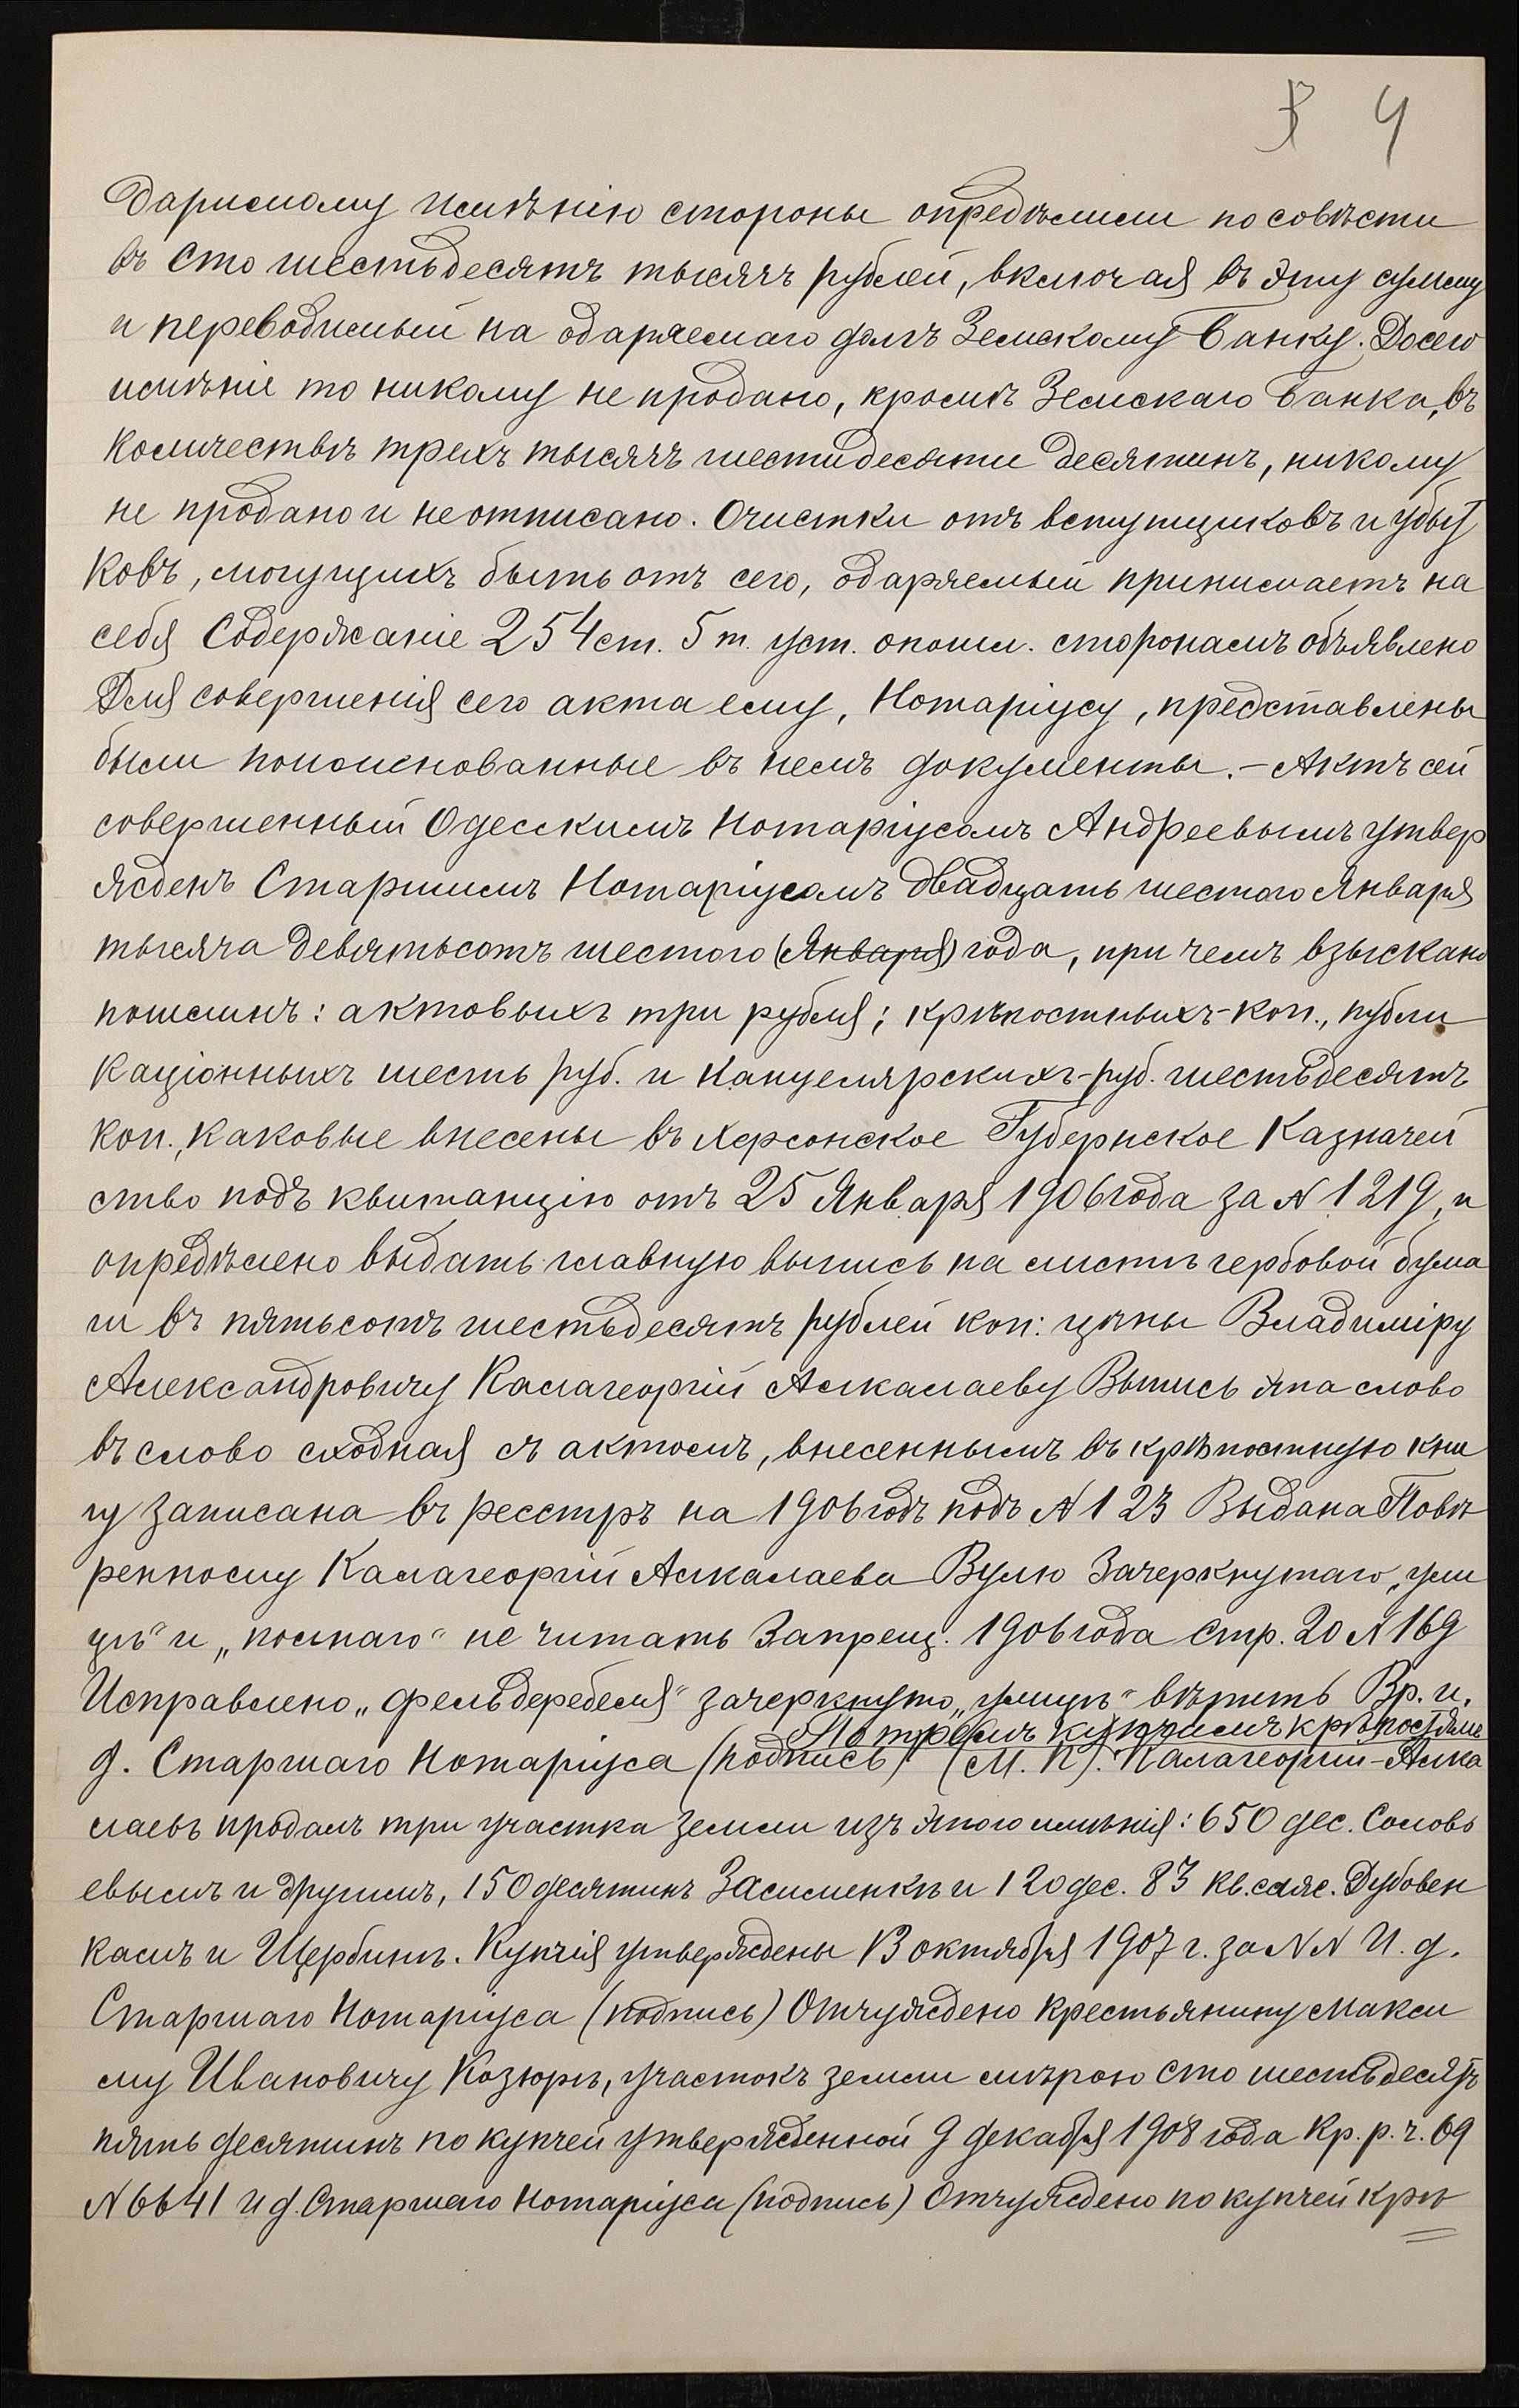 4
даримому имѣнію стороны опредѣлили по совѣсти
въ сто шестьдесятъ тысячъ рублей, включая въ эту сумму
и переводимый на одаряемаго долгъ Земскому Банку. Досего
имѣніе то никому не продано, кромѣ Земскаго Банка, въ
количествѣ трехъ тысячъ шестидесяти десятинъ, никому
не продано и не отписано. Очистки отъ вступщиковъ и убыт
ковъ, могущихъ быть отъ сего, одаряемый принимаетъ на
себя Содержаніе 254 ст. 5 т. уст. о пошл. сторонамъ объявлено
Для совершенія сего акта ему, Нотаріусу, представлены
были поименованные въ немъ документы.- Актъ сей
совершенный Одесскимъ Нотаріусомъ Андреевымъ утвер
жденъ Старшимъ Нотаріусомъ двадцать шестого Января
тысяча девятьсотъ шестого (Января) года, при чемъ взыскано
пошлинъ: актовыхъ три рубля; крѣпостныхъ-коп., публи
каціонныхъ шесть руб. и канцелярскихъ-руб. шестьдесятъ
коп., каковые внесены въ Херсонское Губернское Казначей
ство подъ квитанцію отъ 25 Января 1906 года за N 1219, и
опредѣлено выдать главную выпись на листѣ гербовой бума
ги въ пятьсотъ шестьдесятъ рублей коп: цѣны Владиміру
Александровичу Калагеоргій Алкалаеву Выпись эта слово
въ слово сходная съ актомъ, внесеннымъ въ крѣпостную кни
гу записана въ реестръ на 1906 годъ подъ N 123 Выдана Повѣ
ренному Калагеоргій Алкалаева Вулю Зачеркнутаго „ули
цѣ" и „полнаго" не читать Запрещ. 1906 года стр. 20 N 169
Исправлено „фельдеребеля" зачеркнуто „улицѣ" вѣрить Вр. и.
По тремъ купчимъ крѣпостямъ
д. Старшаго Нотаріуса (подпись) (М. П). Калагеоргій-Алка
лаевъ продалъ три участка земли изъ этого имѣнія: 650 дес. Соловь
евымъ и другимъ, 150 десятинъ Засименкѣ и 120 дес. 83 кв. саж. Дубовен
камъ и Щербинѣ. Купчія утверждены 13 октября 1907 г. за NN И. д.
Старшаго Нотаріуса (подпись) Отчуждено крестьянину Макси
му Ивановичу Козюрѣ, участокъ земли мѣрою сто шестьдесятъ
пять десятинъ по купчей утвержденной 9 декабря 1908 года Кр. р. ч. 69
N 6641 И д. Старшаго Нотаріуса (подпись) Отчуждено по купчей крѣ